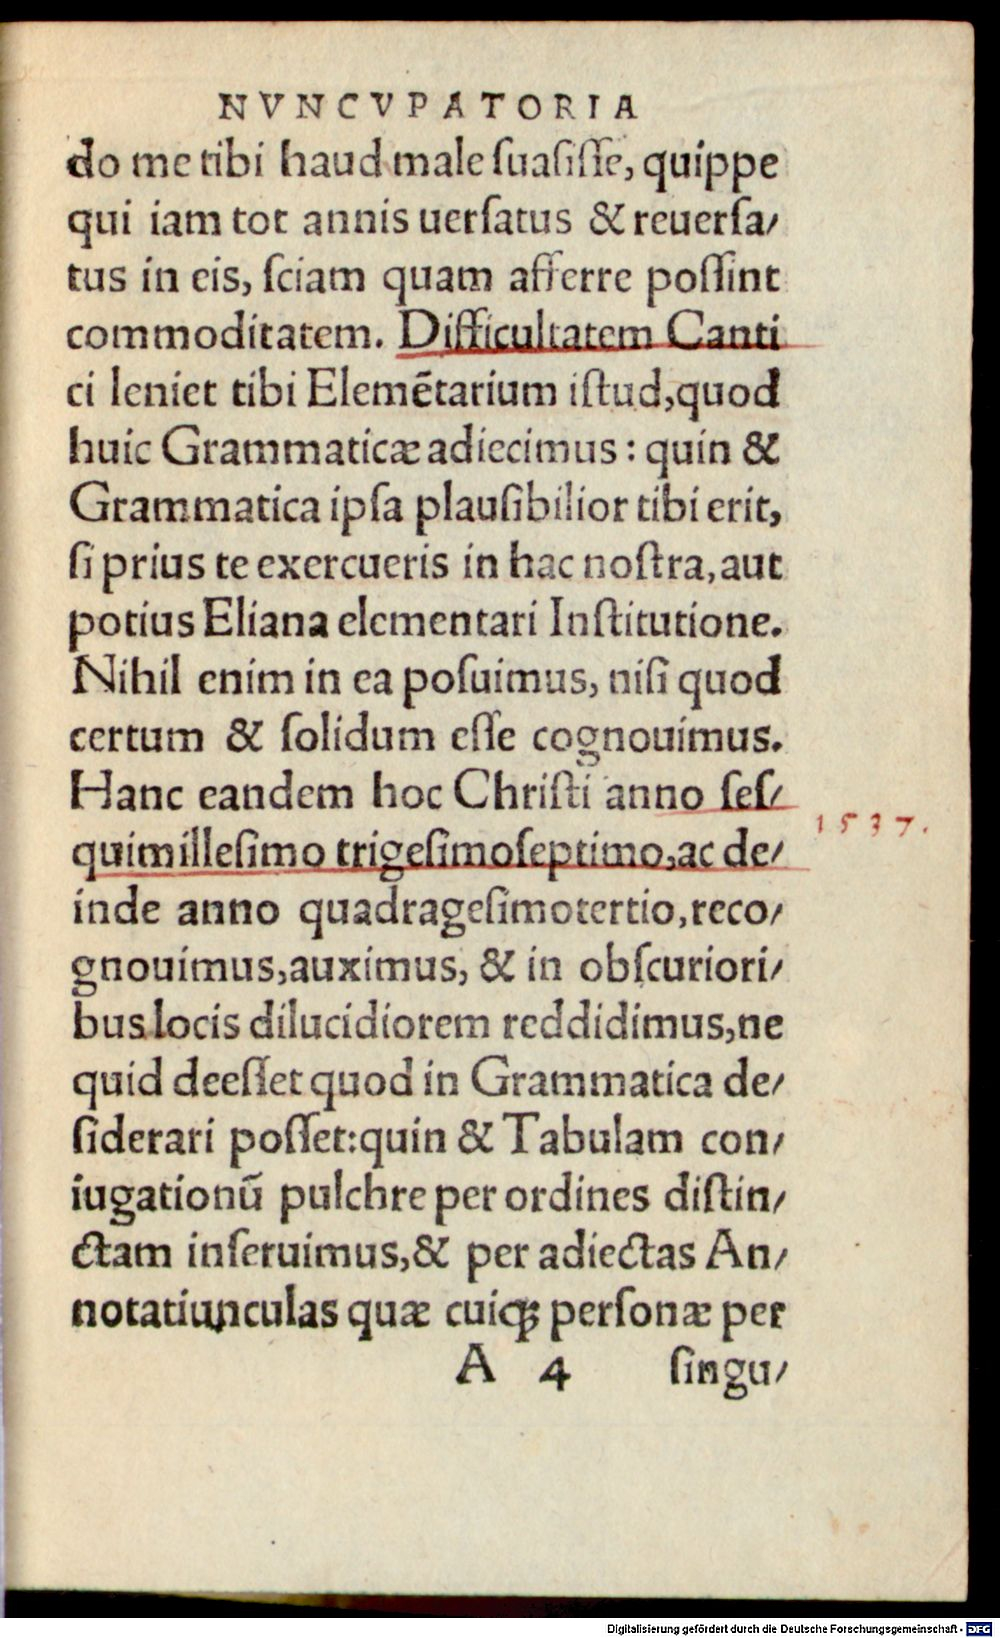 NVNCVPATORIA
do me tibi haud male ſuaſiſſe, quippe
qui iam tot annis uerſatus & reuerſa/
tus in eis, ſciam quam afferre poſſint
commoditatem. Difficultatem Canti
ci leniet tibi Elemētarium iſtud, quod
huic Grammaticæ adiecimus: quin &
Grammatica ipſa plauſibilior tibi erit,
ſi prius te exercueris in hac noſtra, aut
potius Eliana elementari Inſtitutione.
Nihil enim in ea poſuimus, niſi quod
certum & ſolidum eſſe cognouimus.
Hanc eandem hoc Chriſti anno ſeſ/
1537.
quimilleſimo trigeſimoſeptimo, ac de/
inde anno quadrageſimotertio, reco/
gnouimus, auximus, & in obſcuriori/
bus locis dilucidiorem reddidimus, ne
quid deeſſet quod in Grammatica de/
ſiderari poſſet: quin & Tabulam con/
iugationū pulchre per ordines diſtin/
ctam inſeruimus, & per adiectas An/
notatiunculas quæ cuiqꝫ perſonæ per
A 4 ſingu/
Digitalisierung gefördert durch die Deutsche Forschungsgemeinschaft - DFG